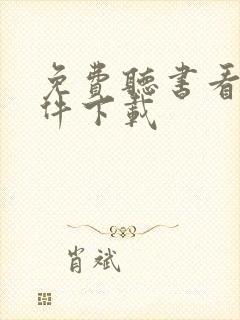 免費聽書看
件下載
肖斌